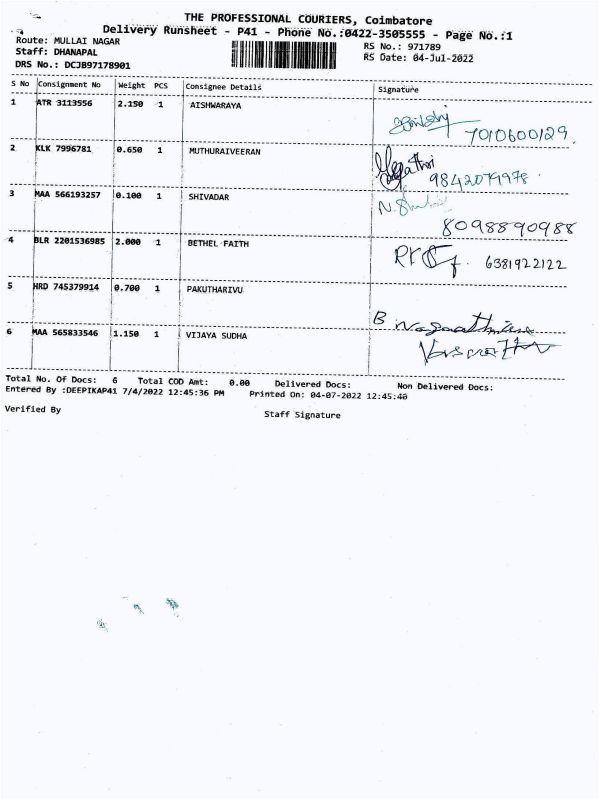 THE PROFESSIONAL COURIERS, Coimbatore
Delivery Runsheet - P41 - Phone No.:0422-3505555 - Page No.:1
Route: MULLAI NAGAR RS No.: 971789
Staff: DHANAPAL RS Date: 04-Jul-2022
DRS No.: DCJB97178901
S No Consignment No Weight PCS Consignee Details Signature
1 ATR 3113556 2.150 1 AISHWARAYA
7010600129.
2 KLK 7996781 0.650 1 MUTHURAIVEERAN
9842079978.
3 MAA 566193257 0.100 1 SHIVADAR
8098890988
4 BLR 2201536985 2.000 1 BETHEL FAITH
6381922122
5 HRD 745379914 0.700 1 PAKUTHARIVU
B
6 MAA 565833546 1.150 1 VIJAYA SUDHA
Total No. Of Docs: 6 Total COD Amt: 0.00 Delivered Docs: Non Delivered Docs:
Entered By :DEEPIKAP41 7/4/2022 12:45:36 PM Printed On: 04-07-2022 12:45:40
Verified By Staff Signature